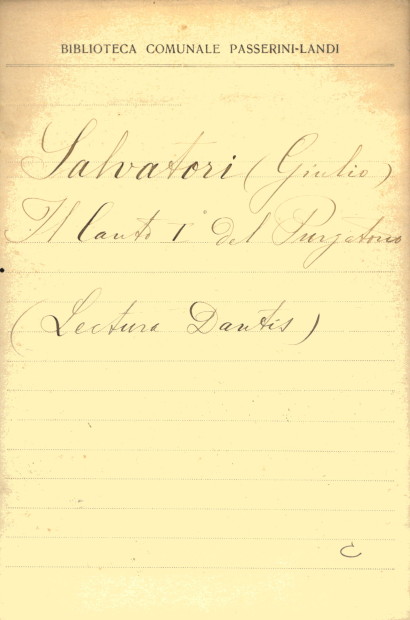 BIBLIOTECA COMUNALE PASSERINI-LANDI
Salvatori (Giulio)
Il Canto I° del Purgatorio
(Lectura Dantis)
C